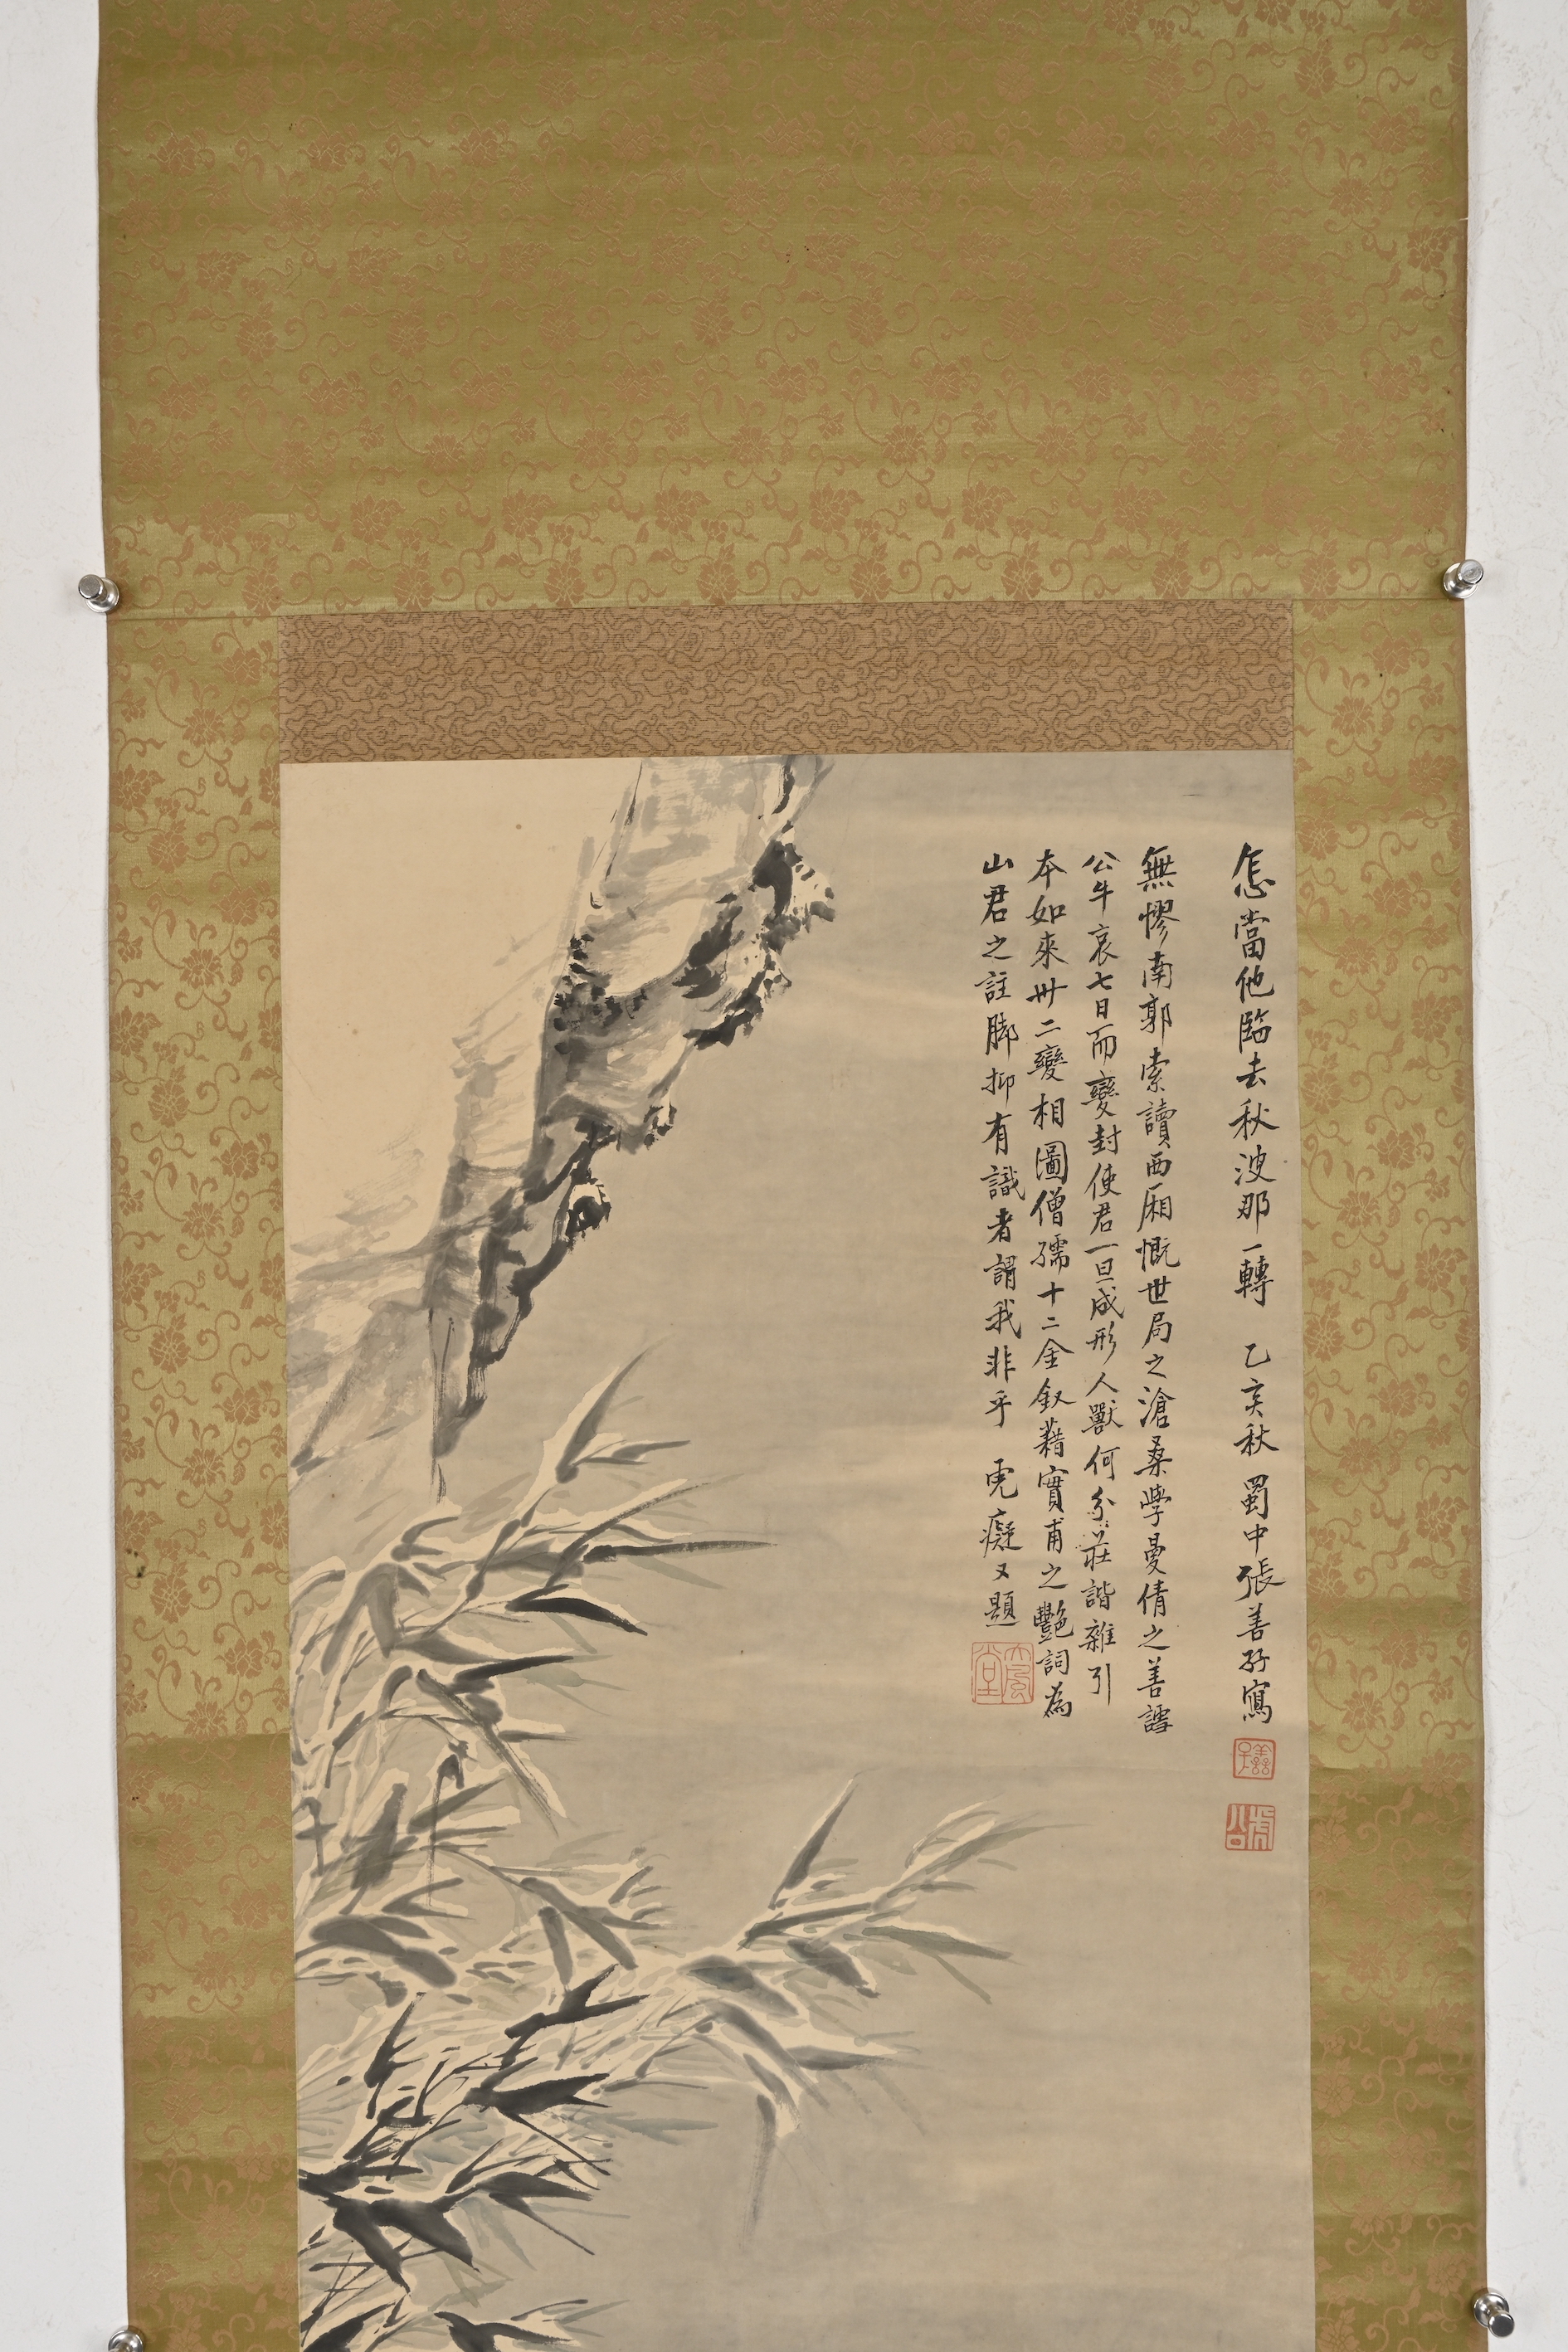 怎當他臨去秋波那一轉 乙亥秋 蜀中張善孖寫
善孖
虎公
無憀南郭索讀西廂慨世局之滄桑學曼倩之善謔
公牛哀七日而變封使君一旦成形人獸何分莊諧雜引
本如來卅二變相圖僧孺十二金釵藉實甫之艷詞為
山君之註脚抑有識者謂我非乎 虎癡又題
大風堂